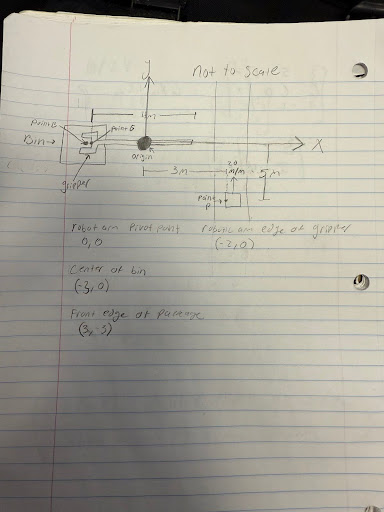 y
not to scale
point B
point G
Bin
X
origin
gripper
3m
20
m/m
5m
point
P
robot arm pivot point
0,0
robotic arm edge of gripper
(-2,0)
Center of bin
(-3,0)
Front edge of package
(3,-5)